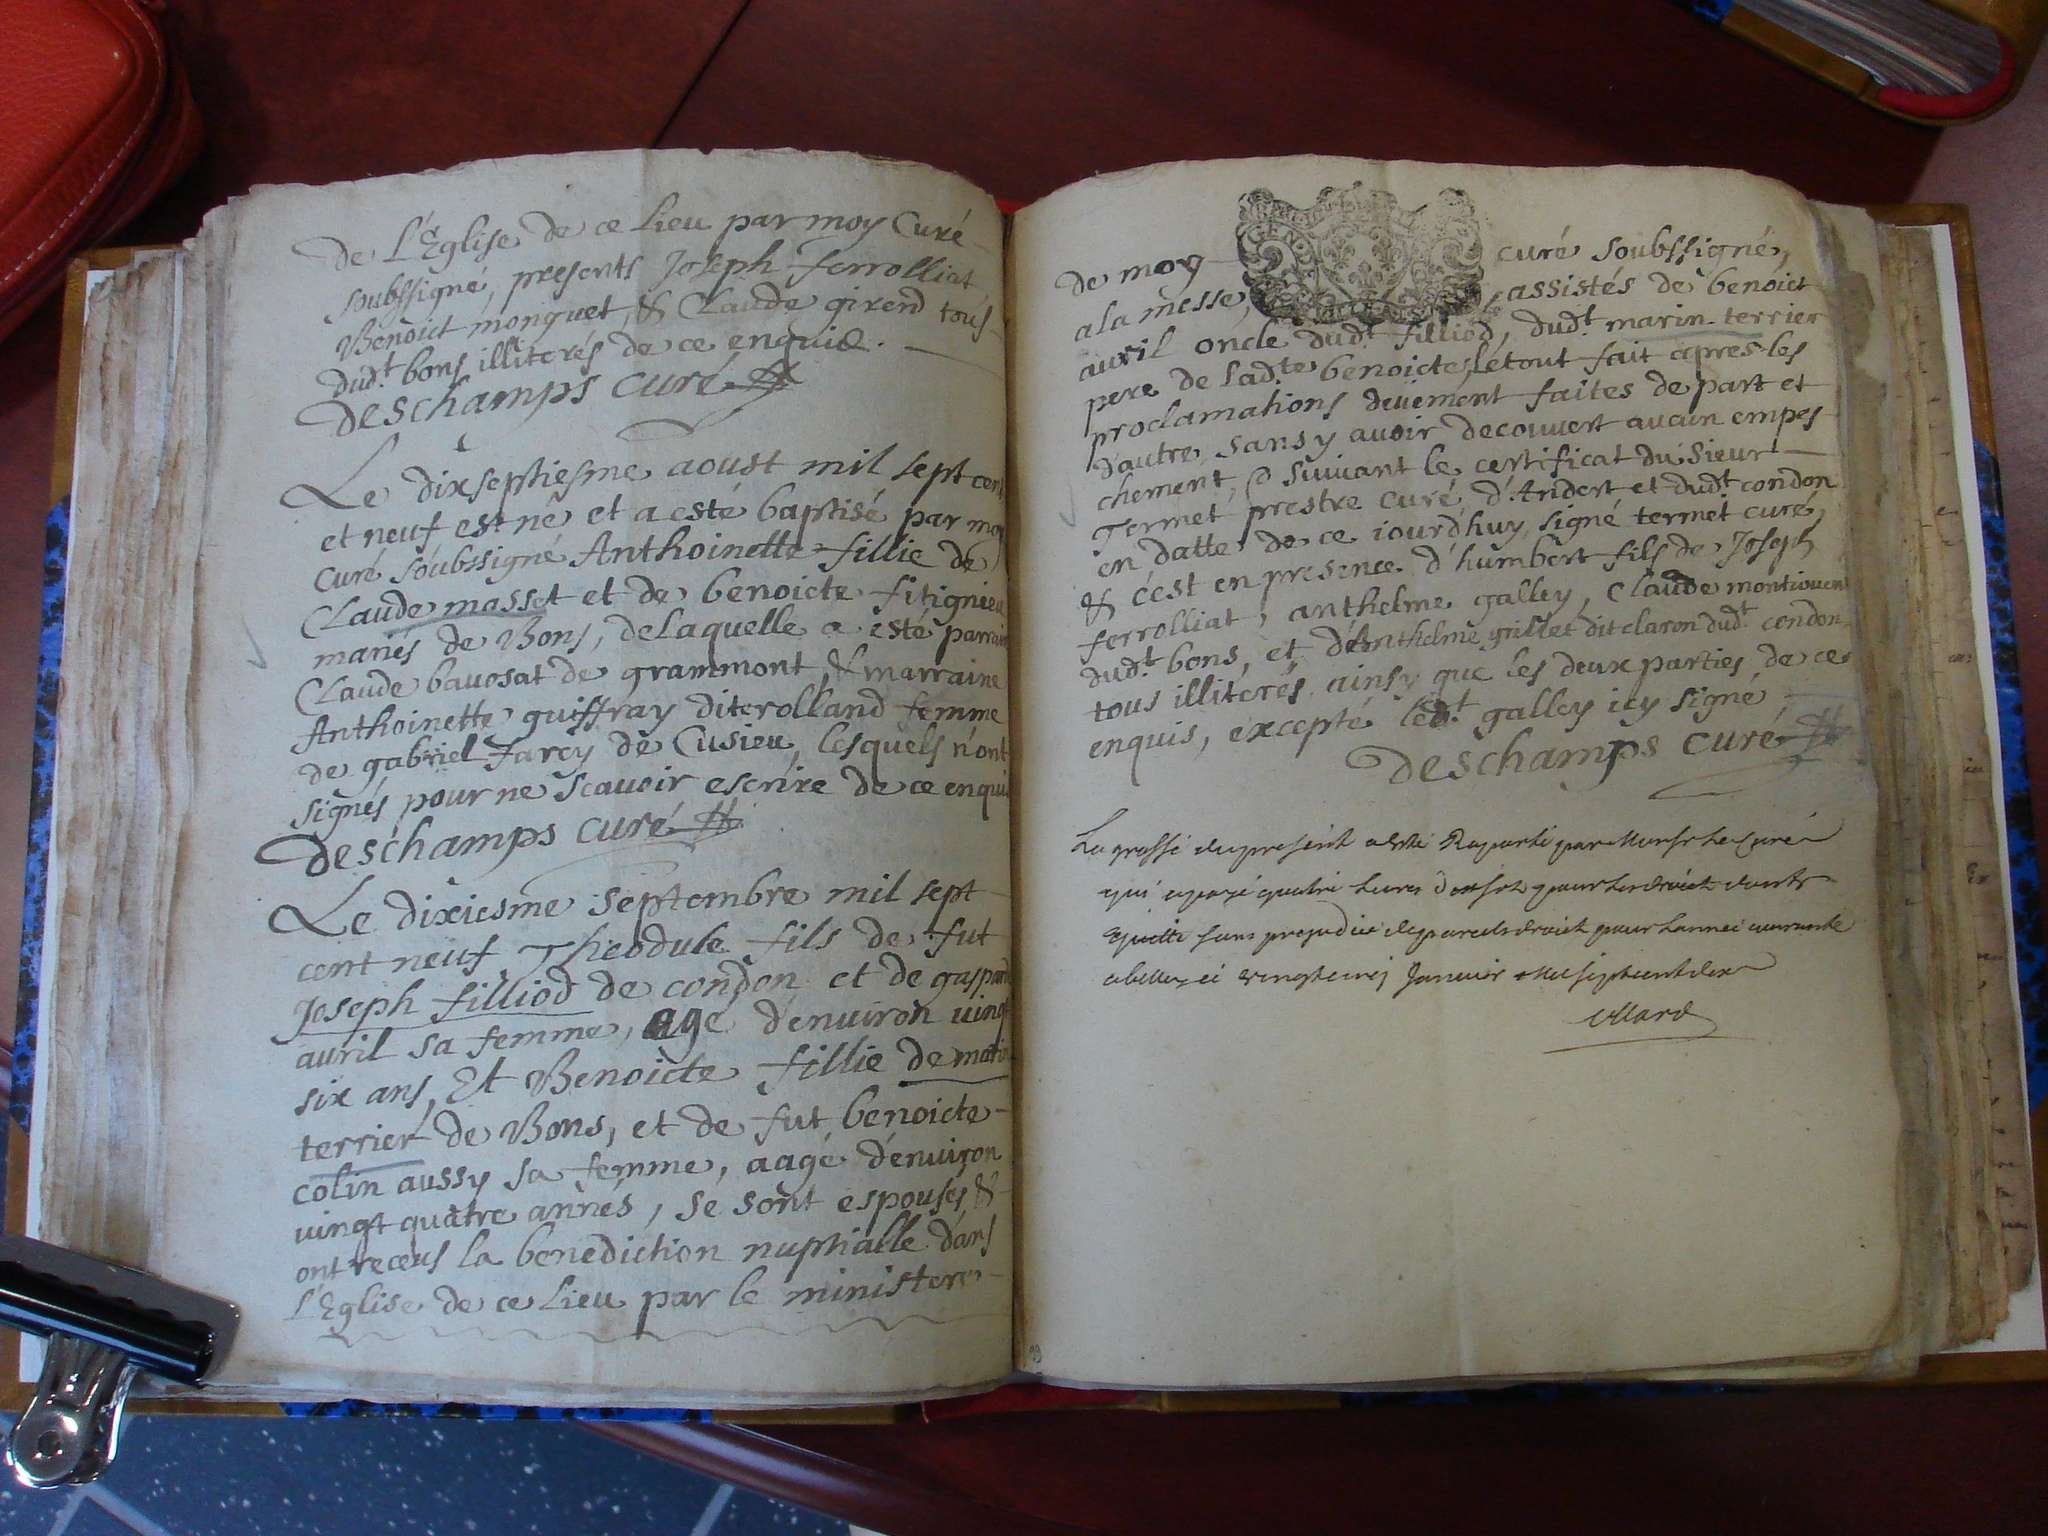 de L'Eglise de ce Lieu par moy Curé
soubssigné, presents Joseph ferrolliat,
Benoict monguet, & Claude girend tous
dud.t bons illiterés de ce enquis.
Deschamps curé
Le dixseptiesme aoust mil sept cent
et neuf est né et a esté baptisé par moy
curé soubssigné Anthoinette fillie de
Claude masset et de benoicte fitignieu
mariés de Bons, de Laquelle a esté parrain
Claude bavosat de grammont, & marraine
Anthoinette guiffray dit rolland femme
de gabriel Jarcy de Cusieu, lesquels n'ont
signés pour ne scavoir escrire de ce enquis
Deschamps curé
Le dixiesme septembre mil sept
cent neuf Theodule fils de fut
Joseph filliod de condon et de gasparde
avril sa femme, age d'environ vingt
six ans, Et Benoicte fillie de marin
terrier de Bons, et de fut benoicte
colin aussy sa femme, aagé d'environ
vingt quatre annés, se sont espousés &
ont receus la benediction nuptialle dans
L'Eglise de ce Lieu par le ministere
GEN
de moy curé soubssigné,
a la messe, assistés de benoict
avril oncle dud.t filliod, dud.t marin terrier
pere de lad.te benoicte, le tout fait apres les
proclamations deuement faites de part et
d'autre, sans y avoir decouvert aucun empes
chement, suivant le certificat du sieur
Termet prestre curé d'Andert et dud.t condon
en datte de ce iourd'huy, signé termet curé,
& c'est en presence d'humbert fils de Joseph
ferrolliat, anthelme galley, Claude
dud.t bons, et d'Anthelme grillet dit claron dud.t condon
tous illiterés ainsy que les deux parties de ce
enquis, excepté led.t galley icy signé
Deschamps curé
La grosse du present a esté Raporté par Monsr le Curé
qui a payé quatre livres pour les droict dont
quitte sans prejudice de pareils droict pour lannee courante
a belley ce vingt cinq Janvier Mil sept cent dix